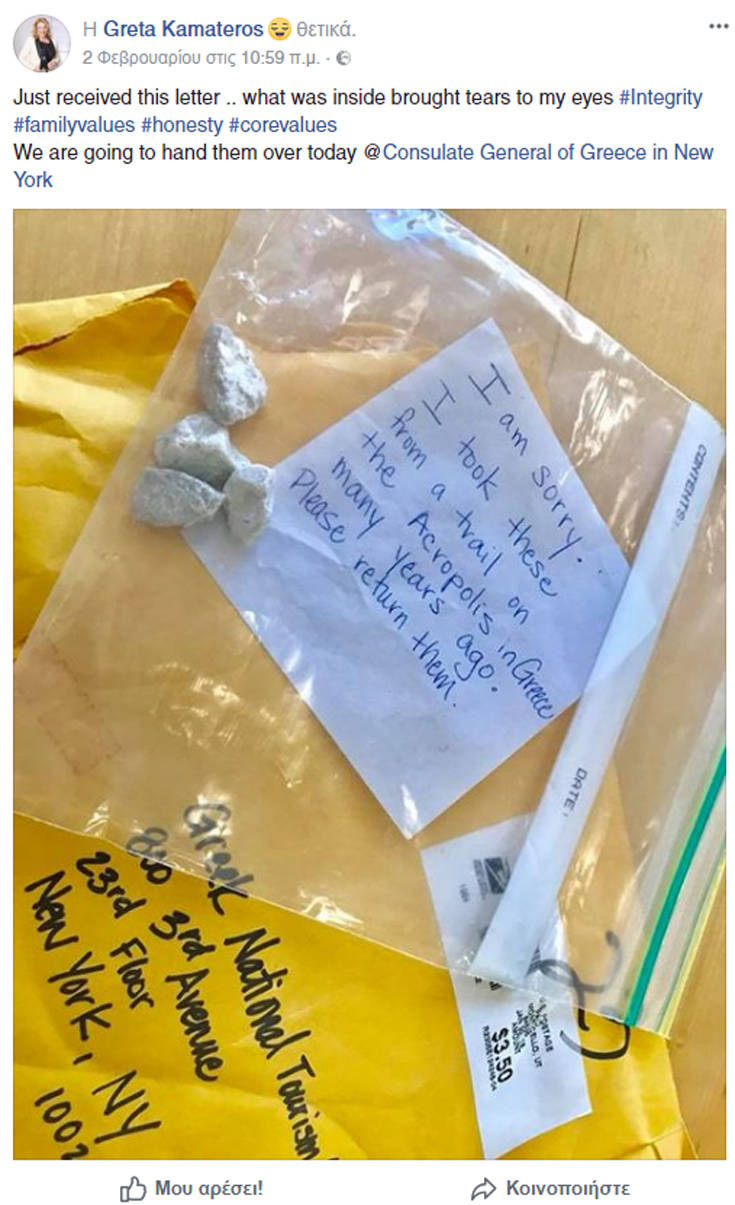 Η Greta Kamateros 😌 θετικά.
2 Φεβρουαρίου στις 10:59 π.μ. ·
Just received this letter .. what was inside brought tears to my eyes #Integrity
#familyvalues #honesty #corevalues
We are going to hand them over today @Consulate General of Greece in New
York
I am sorry.
I took these
from a trail on
the Acropolis in Greece
many years ago.
Please return them.
CONTENTS:
DATE:
Greek National Tourism
830 3rd Avenue
23rd Floor
New York, NY
1002
POSTAGE
UT
AMOUNT
$3.50
Μου αρέσει!
Κοινοποιήστε